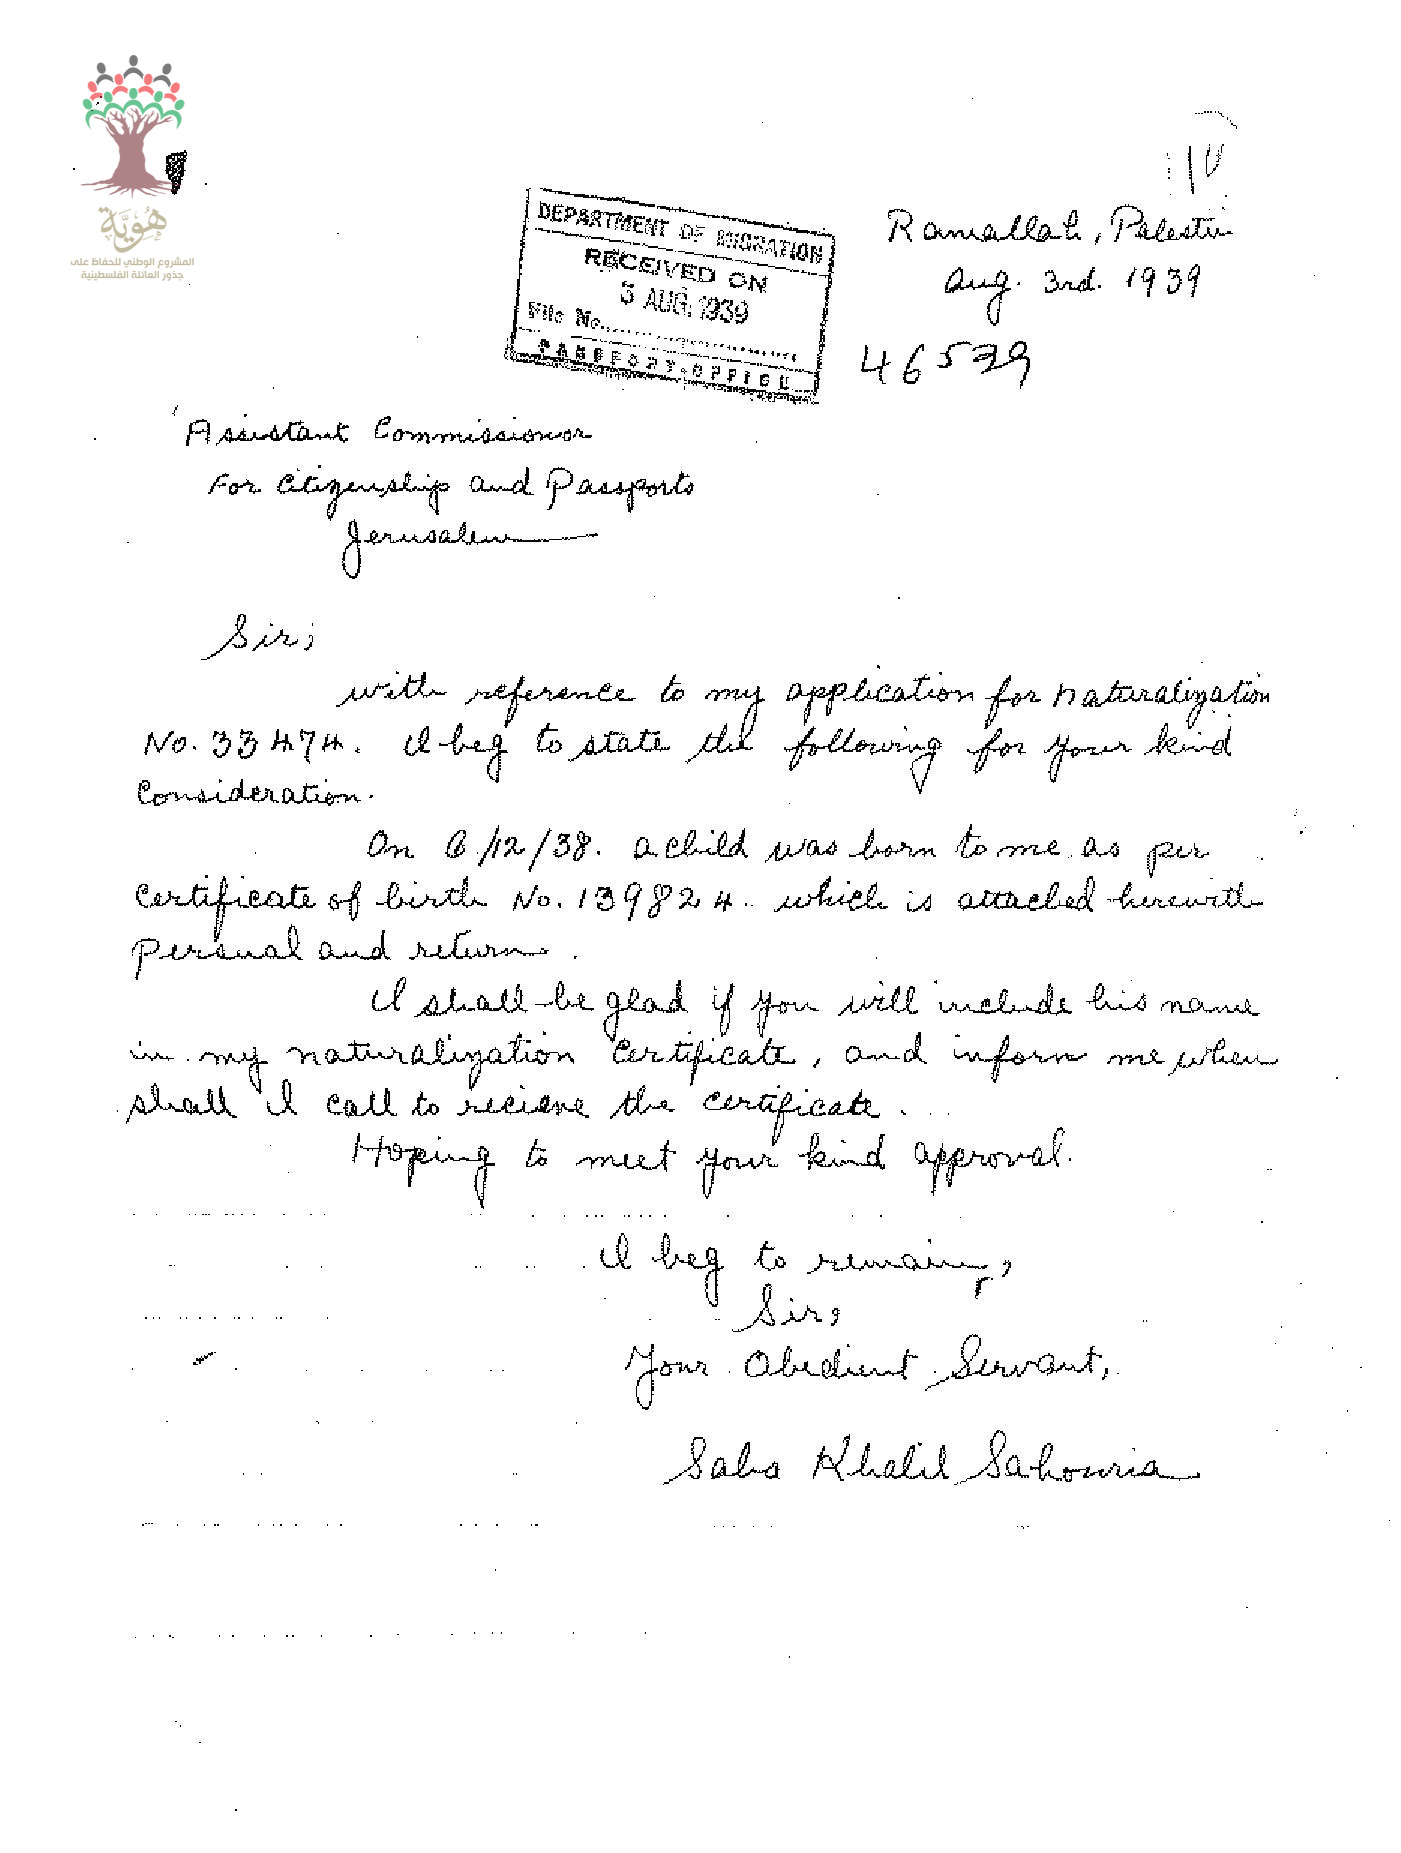 هُويَّة
المشروع الوطني للحفاظ على
جذور العائلة الفلسطينية
10
DEPARTMENT OF MIGRATION
RECEIVED ON
3 AUG. 1939
File No.
PASSPORT OFFICE
Ramallah, Palestin
Aug. 3rd. 1939
46539
Assistant Commissionor
For Citizenship and Passports
Jerusalem
Sir;
with reference to my application for naturalization
No. 33474. I beg to state the following for your kind
Consideration.
On 6/12/38. a child was born to me as per
Certificate of birth No. 139824. which is attached herewith
Perusual and return.
I shall be glad if you will include his name
in my naturalization Certificate, and inform me when
shall I call to recieve the certificate.
Hoping to meet your kind approval.
I beg to remain,
Sir,
Your Obedient Servant,
Saba Khalil Sahouria